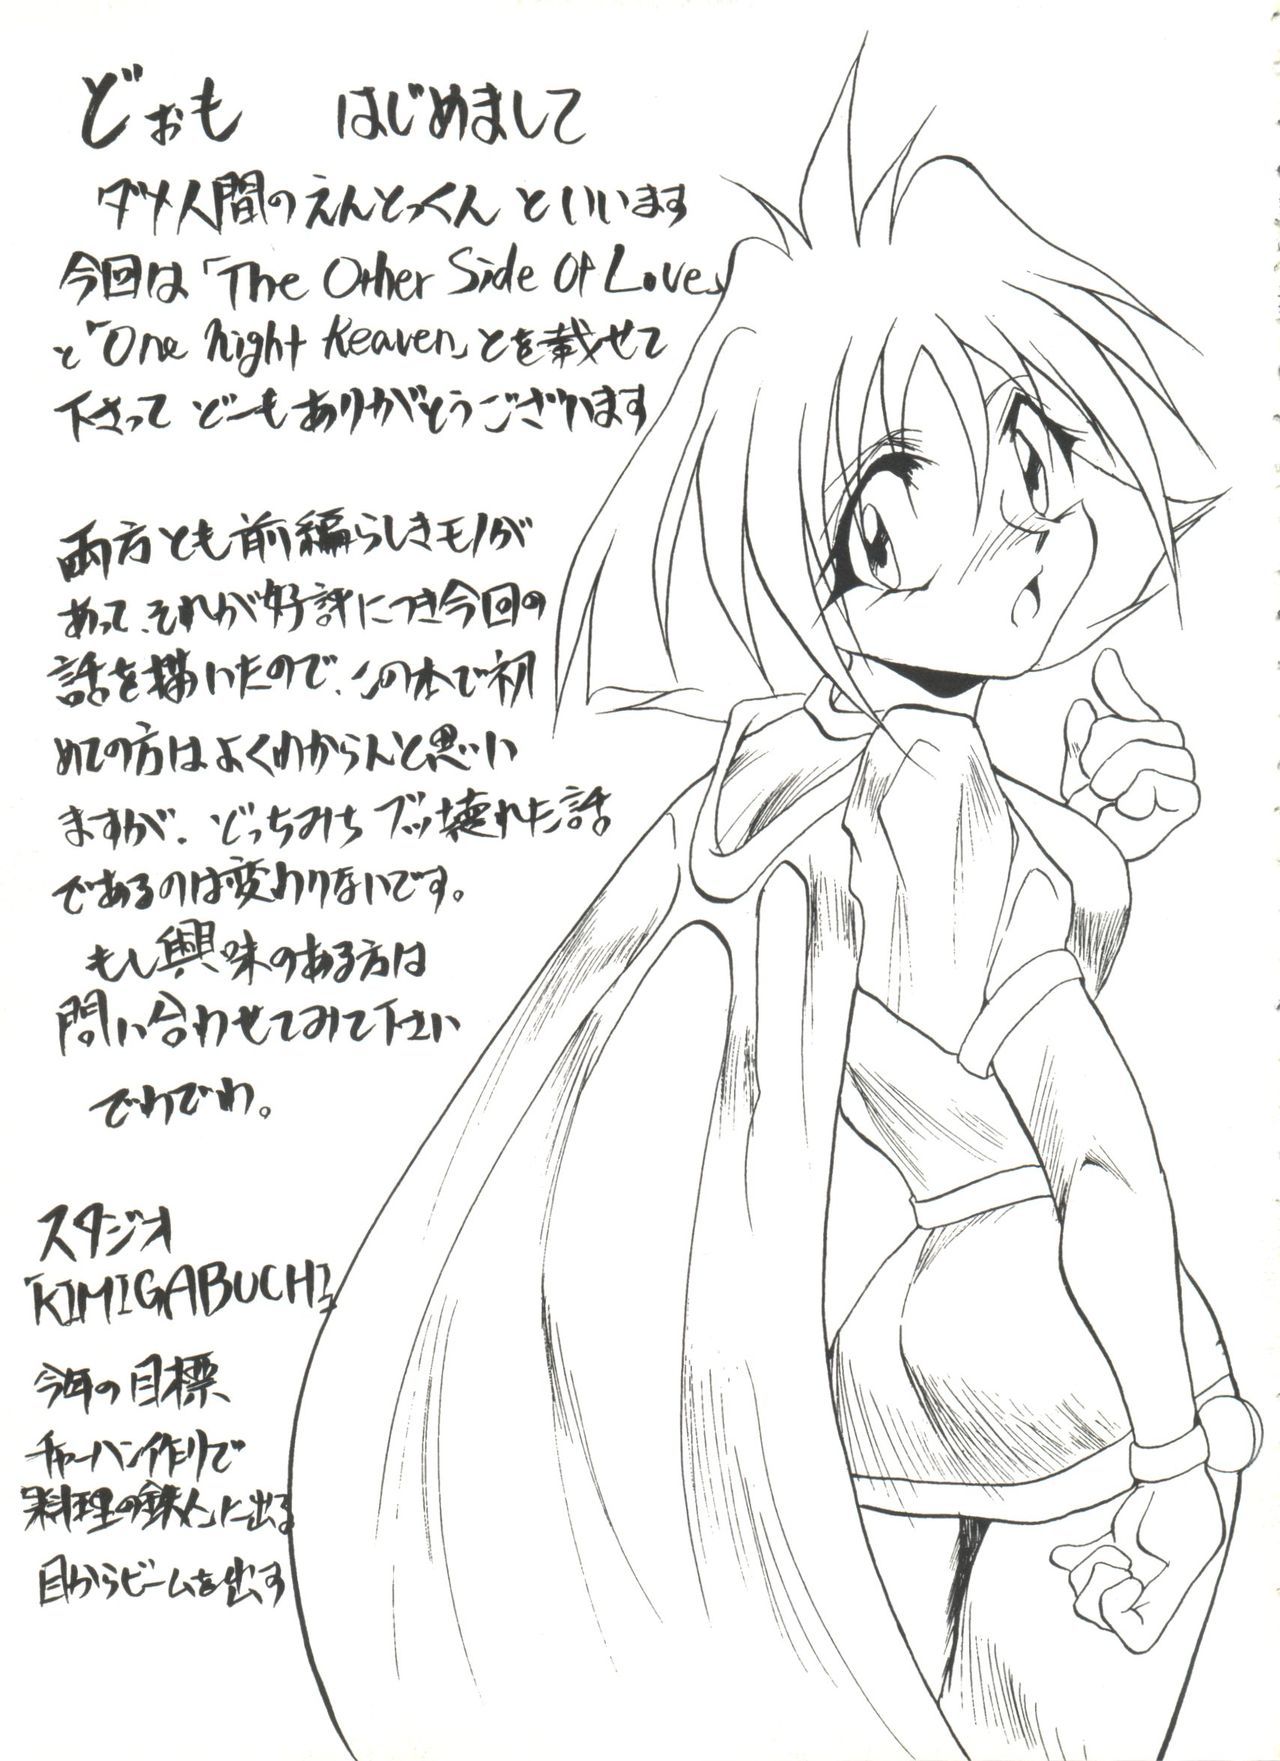 どぉも はじめまして
ダメ人間のえんとっくんといいます
今回は「The Other Side Of Love」
と「One Night Heaven」とを載せて
下さってどーもありがとうございます
両方とも前編らしきモノが
あって、それが好評につき今回の
話を描いたので、この本で初
めての方はよくわからんと思い
ますが、どっちみちブッ壊れた話
であるのは変わりないです。
もし興味のある方は
問い合わせてみて下さい
でわでわ。
スタジオ
「KIMIGABUCHI」
今年の目標
チャーハン作りで
「料理の鉄人」に出る
目からビームを出す